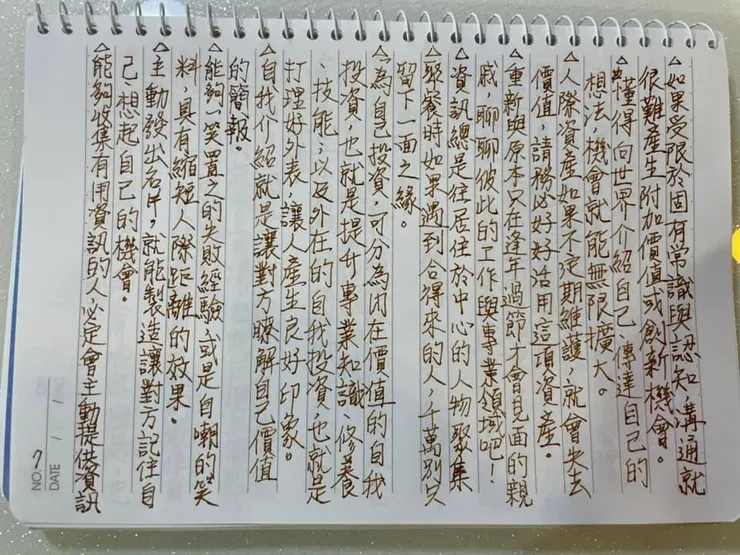 △如果受限於固有常識與認知,溝通就
很難產生附加價值或創新機會。
△懂得向世界介紹自己、傳達自己的
想法,機會就能無限擴大。
△人際資產如果不定期維護,就會失去
價值,請務必好好活用這項資產。
△重新與原本只在逢年過節才會見面的親
戚,聊聊彼此的工作與專業領域吧!
△資訊總是往居住於中心的人物聚集
△聚餐時如果遇到合得來的人,千萬別只
留下一面之緣。
△「為自己投資,可分為內在價值的自我
投資,也就是提升專業知識、修養
、技能,以及外在的自我投資,也就是
打理好外表,讓人產生良好印象。
△自我介紹就是讓對方瞭解自己價值
的簡報。
△能夠一笑置之的失敗經驗、或是自嘲的笑
料,具有縮短人際距離的效果。
△主動發出名片,就能製造讓對方記住自
己、想起自己的機會。
△能夠收集有用資訊的人,必定會主動提供資訊
NO. 7
DATE / /